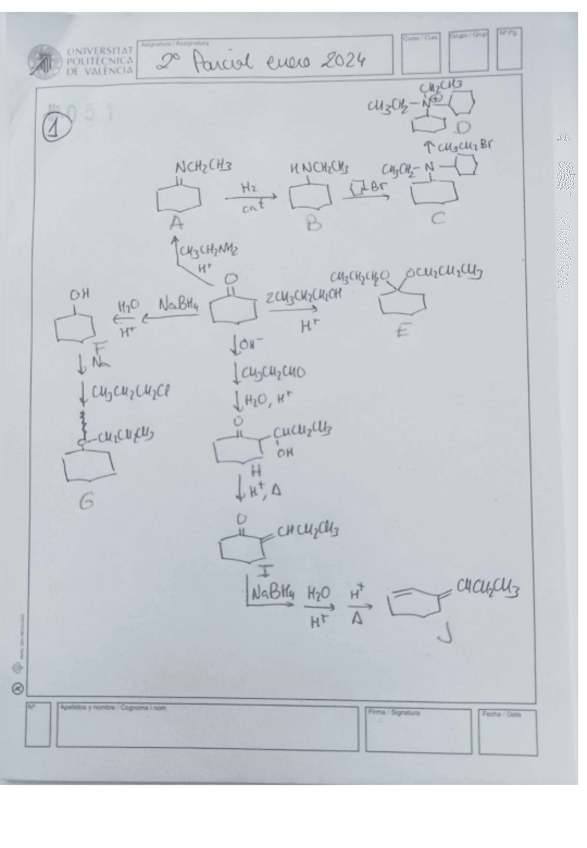 UNIVERSITAT
POLITÈCNICA
DE VALÈNCIA
Asignatura / Assignatura
2º Parcial enero 2024
Curso / Curs
Grupo / Grup
Nº Pg.
1
CH2CH3
CH3CH2-N⊕
D
↑CH3CH2Br
NCH2CH3
H2
cat
A
HNCH2CH3
B
Br
CH3CH2-N
C
CH3CH2NH2
H+
OH
F
H2O
H+
NaBH4
O
2CH3CH2CH2OH
H+
CH3CH2CH2O
OCH2CH2CH3
E
↓Na
↓CH3CH2CH2Cl
-CH2CH2CH3
G
↓OH-
↓CH3CH2CHO
↓H2O, H+
O
CHCH2CH3
OH
H
↓H+, Δ
O
CHCH2CH3
I
NaBH4
H2O
H+
H+
Δ
CHCH2CH3
J
Nº
Apellidos y nombre / Cognoms i nom
Firma / Signatura
Fecha / Data